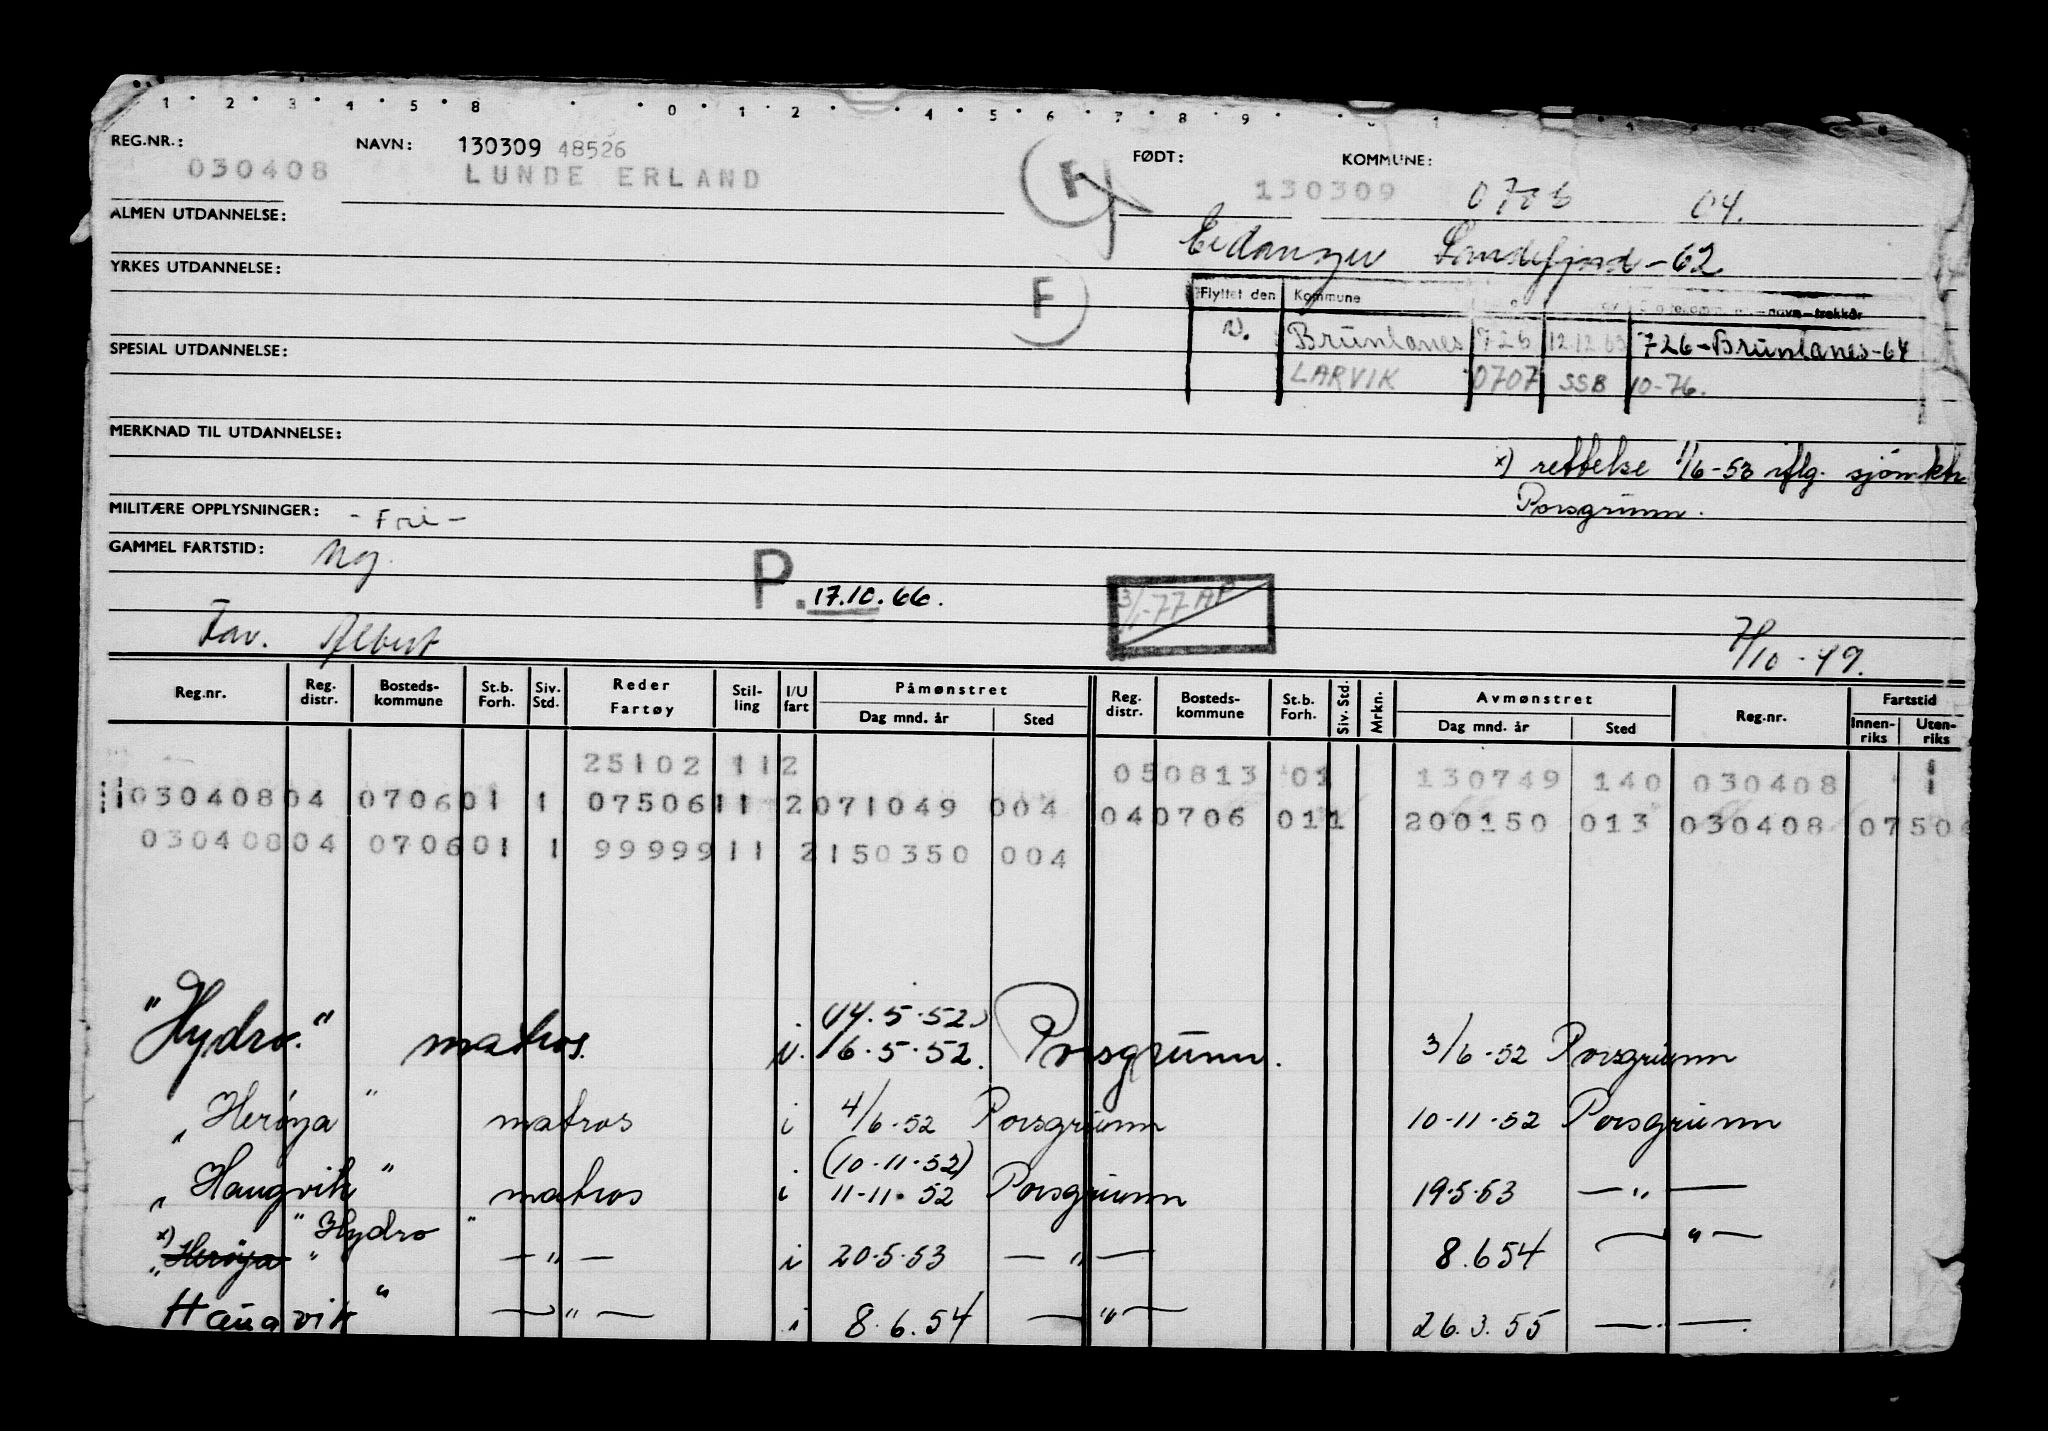 1 · 2 · 3 · 4 · 5 · 8 · · 0 · 1 · 2 · · 4 · 5 · 6 · 7 · 8 · 9 ·
REG.NR.: NAVN: 130309 48526 FØDT: KOMMUNE:
030408 LUNDE ERLAND H 130309 0706 04.
ALMEN UTDANNELSE: Eidanger Sandefjord-62
YRKES UTDANNELSE: F
Flyttet den Kommune navn-trekkår
N. Brunlanes 726 12.12.63 726-Brunlanes-64
SPESIAL UTDANNELSE:
LARVIK 0707 SSB 10-76.
MERKNAD TIL UTDANNELSE:
x) rettelse 1/6-53 iflg. sjömktr
Porsgrunn.
MILITÆRE OPPLYSNINGER: -Fri-
GAMMEL FARTSTID: Nei.
P. 17.10.66. 3/1-77 AP
Far. Albert 7/10-49.
Reg.nr. Reg. distr. Bosteds-kommune St.b. Forh. Siv. Std. Reder Fartøy Stil-ling I/U fart Påmønstret Dag mnd. år Sted Reg. distr. Bosteds-kommune St.b. Forh. Siv. Std. Mrkn. Avmønstret Dag mnd. år Sted Reg.nr. Fartstid Innen-riks Uten-riks
25102 112 050813 01 130749 140 030408
03040804 070601 1 0750611 2071049 004 040706 011 200150 013 030408 0750
03040804 070601 1 9999911 2150350 004
(14.5.52)
"Hydro." matros. i. 16.5.52. Porsgrunn. 3/6-52 Porsgrunn
"Herøya" matros i 4/6-52 Porsgrunn 10-11-52 Porsgrunn
(10-11-52)
"Haugvik" matros i 11-11-52 Porsgrunn 19.5.53 — " —
"Hydro"
x) "Herøya" — " — i 20.5.53 — " — 8.6 54 — " —
Haugvik" — " — i 8.6.54 — " — 26.3.55 — . —